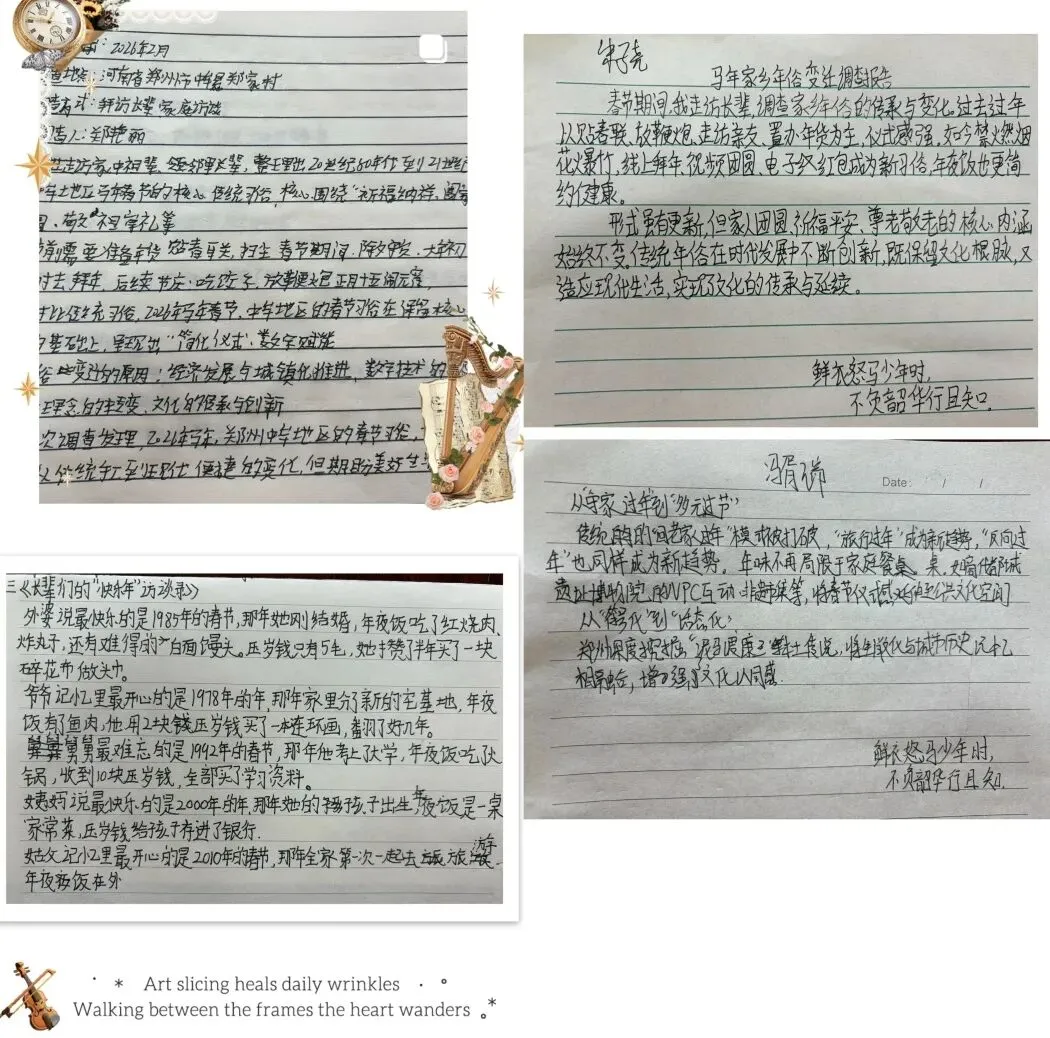 2026年2月
河南省郑州市中牟县郑家村
方式：拜访长辈 家庭访谈
告人：郑艳丽
走访家中祖辈、邻里长辈，整理出20世纪80年代到21世纪
地区马年春节的核心传统习俗，核心围绕“祈福纳祥、阖家
敬祖崇礼等
前需要准备年货 贴春联，扫尘 春节期间，除夕守岁，大年初
过去拜年 后续节庆：吃饺子，放鞭炮 正月十五闹元宵，
比传统习俗，2026年马年春节，中牟地区的春节习俗在保留核心
基础上，呈现出“简化仪式，数字赋能
变迁的原因：经济发展与城镇化推进，数字技术的
理念的转变、文化的传承与创新
次调查发现，2026年马年，郑州中牟地区的春节习俗，
从传统到现代便捷的变化，但期盼美好生
三《长辈们的“快乐年”访谈录》
外婆说最快乐的是1985年的春节，那年她刚结婚，年夜饭吃了红烧肉、
炸丸子，还有难得的白面馒头。压岁钱只有5毛，她攒了半年买了一块
碎花布做头巾。
爷爷记忆里最开心的是1978年的年，那年家里分了新的宅基地，年夜
饭有了鱼肉，他用2块钱压岁钱买了一本连环画，翻了好几年。
舅舅最难忘的是1992年的春节，那年他考上大学，年夜饭吃火
锅，收到10块压岁钱，全部买了学习资料。
姨妈说最快乐的是2000年的年，那年她的孩子出生，年夜饭是一桌
家常菜，压岁钱给孩子存进了银行.
姑父记忆里最开心的是2010年的春节，那年全家第一次一起去旅游
年夜饭在外
马年家乡年俗变迁调查报告
春节期间，我走访长辈，调查家乡年俗的传承与变化。过去过年
以贴春联、放鞭炮、走访亲友、置办年货为主，仪式感强。如今禁火燃烟
花爆竹，线上拜年、视频团圆、电子红包成为新习俗，年夜饭也更简
约健康。
形式虽有更新，但家人团圆、祈福平安、尊老敬老的核心内涵
始终不变。传统年俗在时代发展中不断创新，既保留文化根脉，又
适应现代生活，实现了文化的传承与延续。
鲜衣怒马少年时，
不负韶华行且知.
Date: / /
从“守家过年”到“多元过节”
传统的“回老家过年”模式被打破，“旅行过年”成为新趋势，“反向过
年”也同样成为新趋势。年味不再局限于家庭餐桌，如商代都城
遗址博物院的NPC互动 非遗集等，将春节仪式感延伸至公共文化空间
从“舞化”到“活态化”
郑州深度挖掘 本土传说，将生肖文化与城市历史记忆
相融合，增强了文化认同感.
鲜衣怒马少年时，
不负韶华行且知.
Art slicing heals daily wrinkles
Walking between the frames the heart wanders